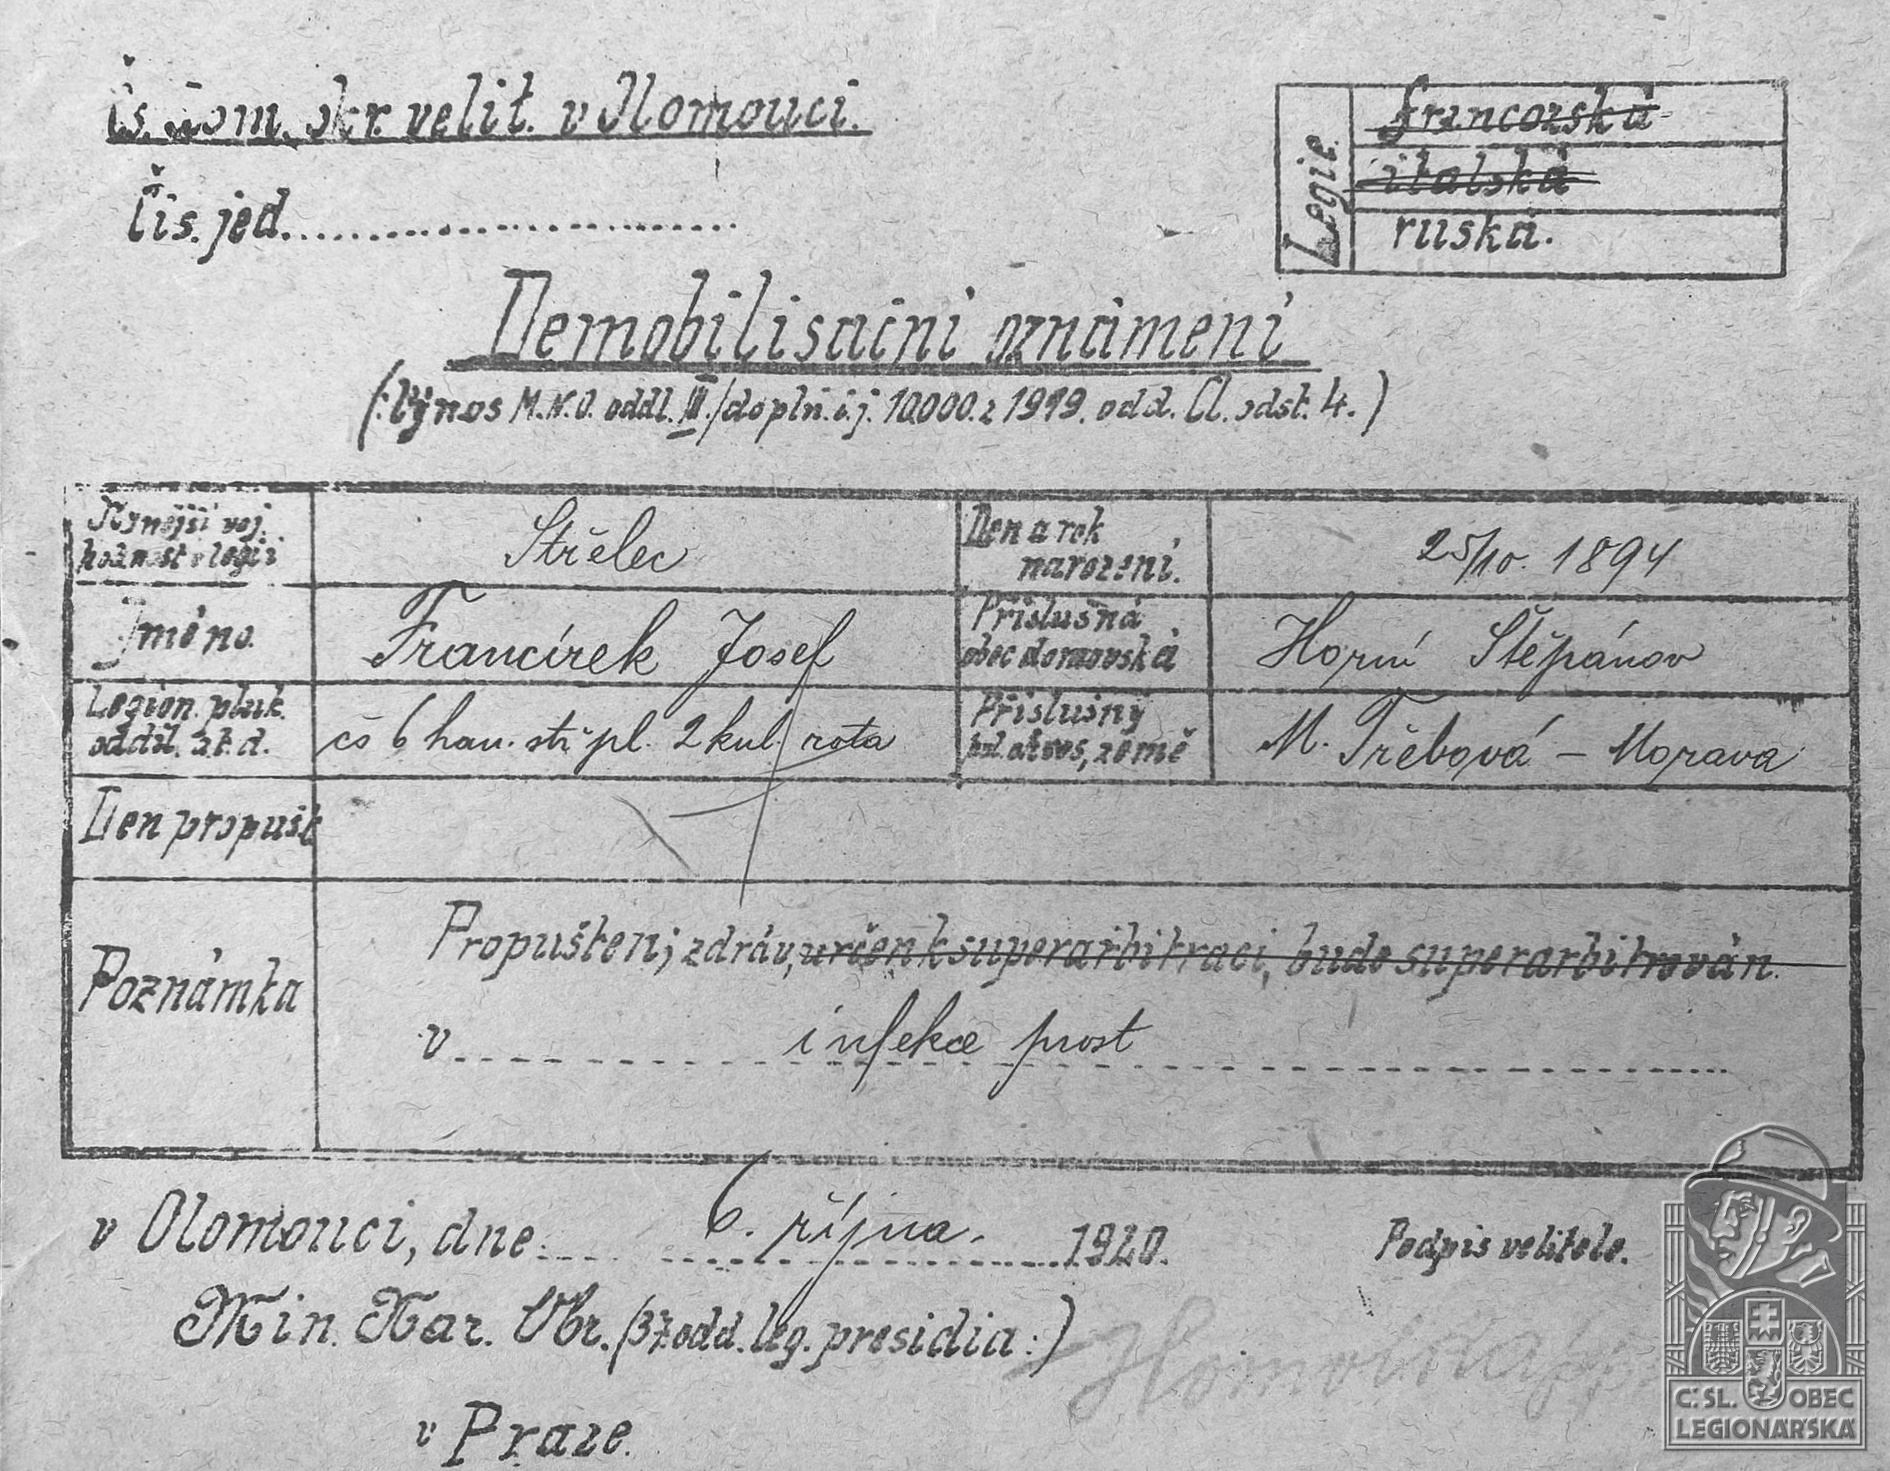 Čs. dom. okr. velit. v Olomouci.
Legie.
francozská
italská
ruská.
Čís. jed.
Demobilisační oznámení
(: Výnos M.N.O. oddl. III./dopln. č.j. 10.000. z 1919. odd. A. odst. 4.)
Nynější voj. hodnost v legii
Střelec
Den a rok narození.
25/10. 1894
Jméno.
Francírek Josef
Příslušná obec domovská
Horní Štěpánov
Legion. pluk. oddíl. a.t.d.
čs 6 han. stř pl. 2 kul. rota
Příslušný okres, země
M. Třebová – Morava
Den propušt
Poznámka
Propuštěn; zdráv, určen k superarbitraci, bude superarbitrován.
v infekce prost
v Olomouci, dne: 6. října. 1920.
Podpis velitele.
Min. Nar. Obr. (37. odd. leg. presidia:)
v Praze.
Č. SL. OBEC
LEGIONÁŘSKÁ